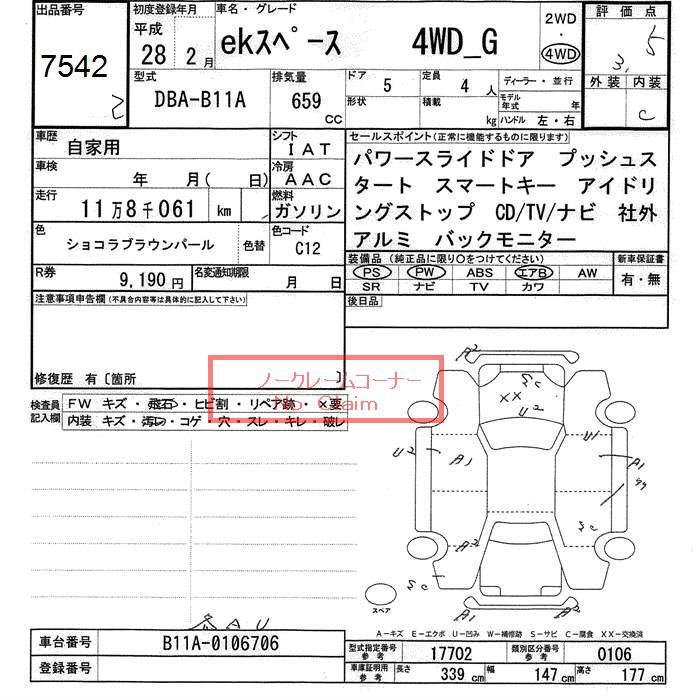 出品番号
7542
2
初度登録年月
平成
28 2月
車名・グレード
ekスペース 4WD_G
2WD
・
4WD
評価点
3.5
外装 内装
C
型式
DBA-B11A
排気量
659
CC
ドア
5
形状
定員
4 人
積載
kg
ディーラー・並行
モデル年式 年
ハンドル 左・右
車歴
自家用
シフト
IAT
車検
年 月( 日)
冷房
AAC
走行
11万8千061 km
燃料
ガソリン
色
ショコラブラウンパール
色替
色コード
C12
R券
9,190円
名変通知期限
月 日
セールスポイント(正常に機能するものに限ります)
パワースライドドア プッシュス
タート スマートキー アイドリ
ングストップ CD/TV/ナビ 社外
アルミ バックモニター
装備品 (純正品に限り○をつけてください)
PS PW ABS エアB AW
SR ナビ TV カワ
新車保証書
有・無
後日品
注意事項申告欄(不具合内容等は具体的に記入して下さい)
修復歴 有〔箇所 〕
ノークレームコーナー
No Claim
検査員
記入欄
FW キズ・飛石・ヒビ割・リペア跡・×要
内装 キズ・汚れ・コゲ・穴・スレ・キレ・破レ
A2
XX
U2
U2
A1
U1
A1
A2
A2
スペア
A-キズ E-エクボ U-凹み W-補修跡 S-サビ C-腐食 XX-交換済
各AU
車台番号
B11A-0106706
登録番号
型式指定番号
参考
17702
類別区分番号
参考
0106
車庫証明用
参考
長さ 339 cm 幅 147 cm 高さ 177 cm